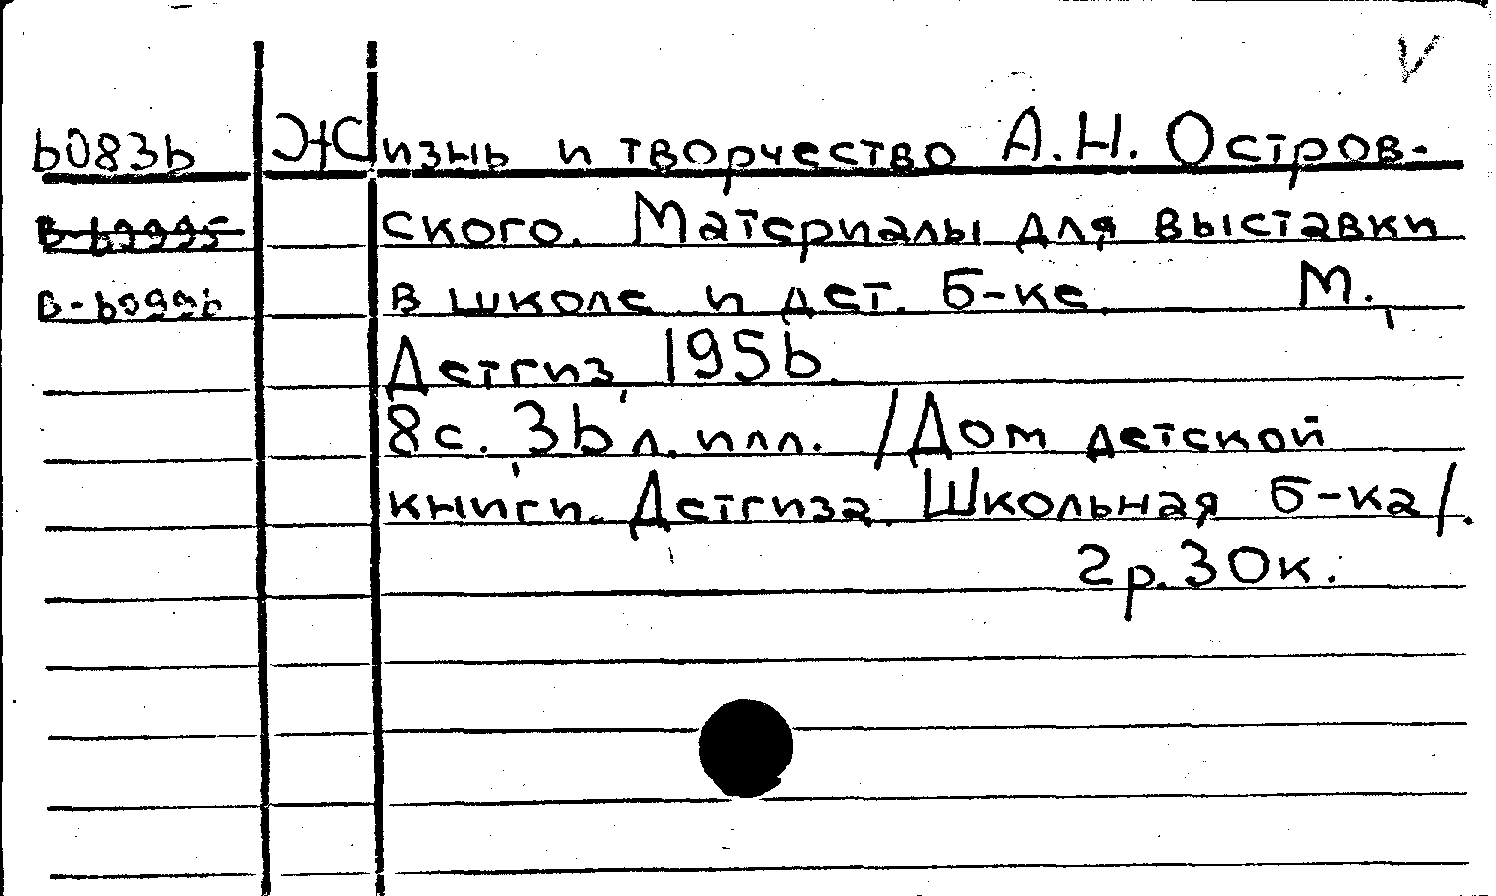 V
60836 Жизнь и творчество А.Н. Остров-
В-69995 ского. Материалы для выставки
В-69996 в школе и дет. б-ке. М.,
Детгиз, 1956.
8с. 36 л. илл. /Дом детской
книги Детгиза. Школьная б-ка/.
2р.30к.